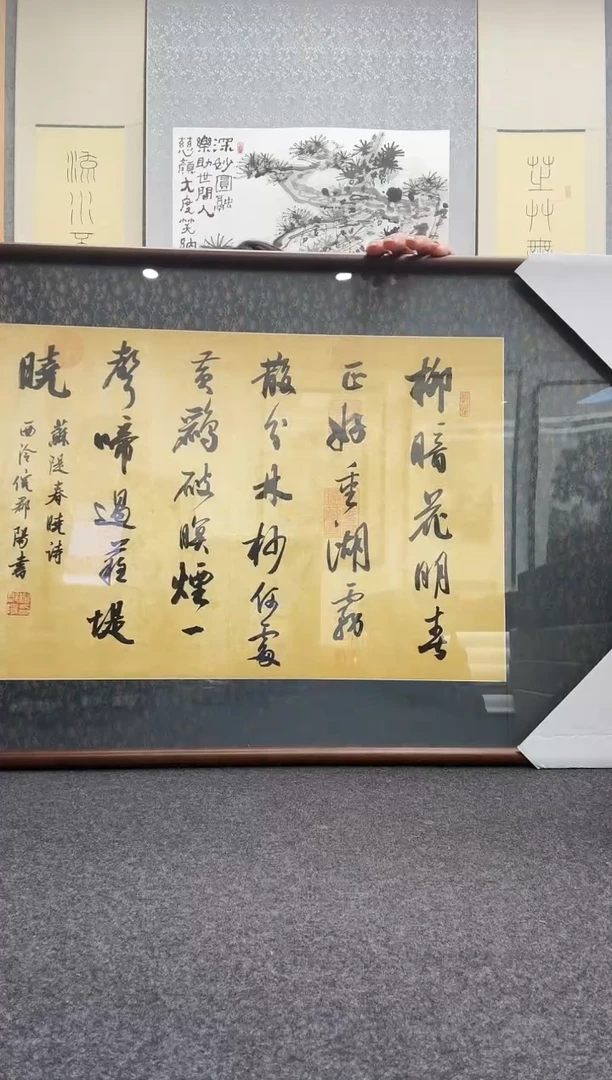 深妙圓融
樂助世間人
慈顏大度笑
流水
柳暗花明春
正好重湖霧
散分林杪何處
黃鸝破暝煙一
聲啼過蘇堤
曉
蘇隄春曉詩
西泠倪郡陽書